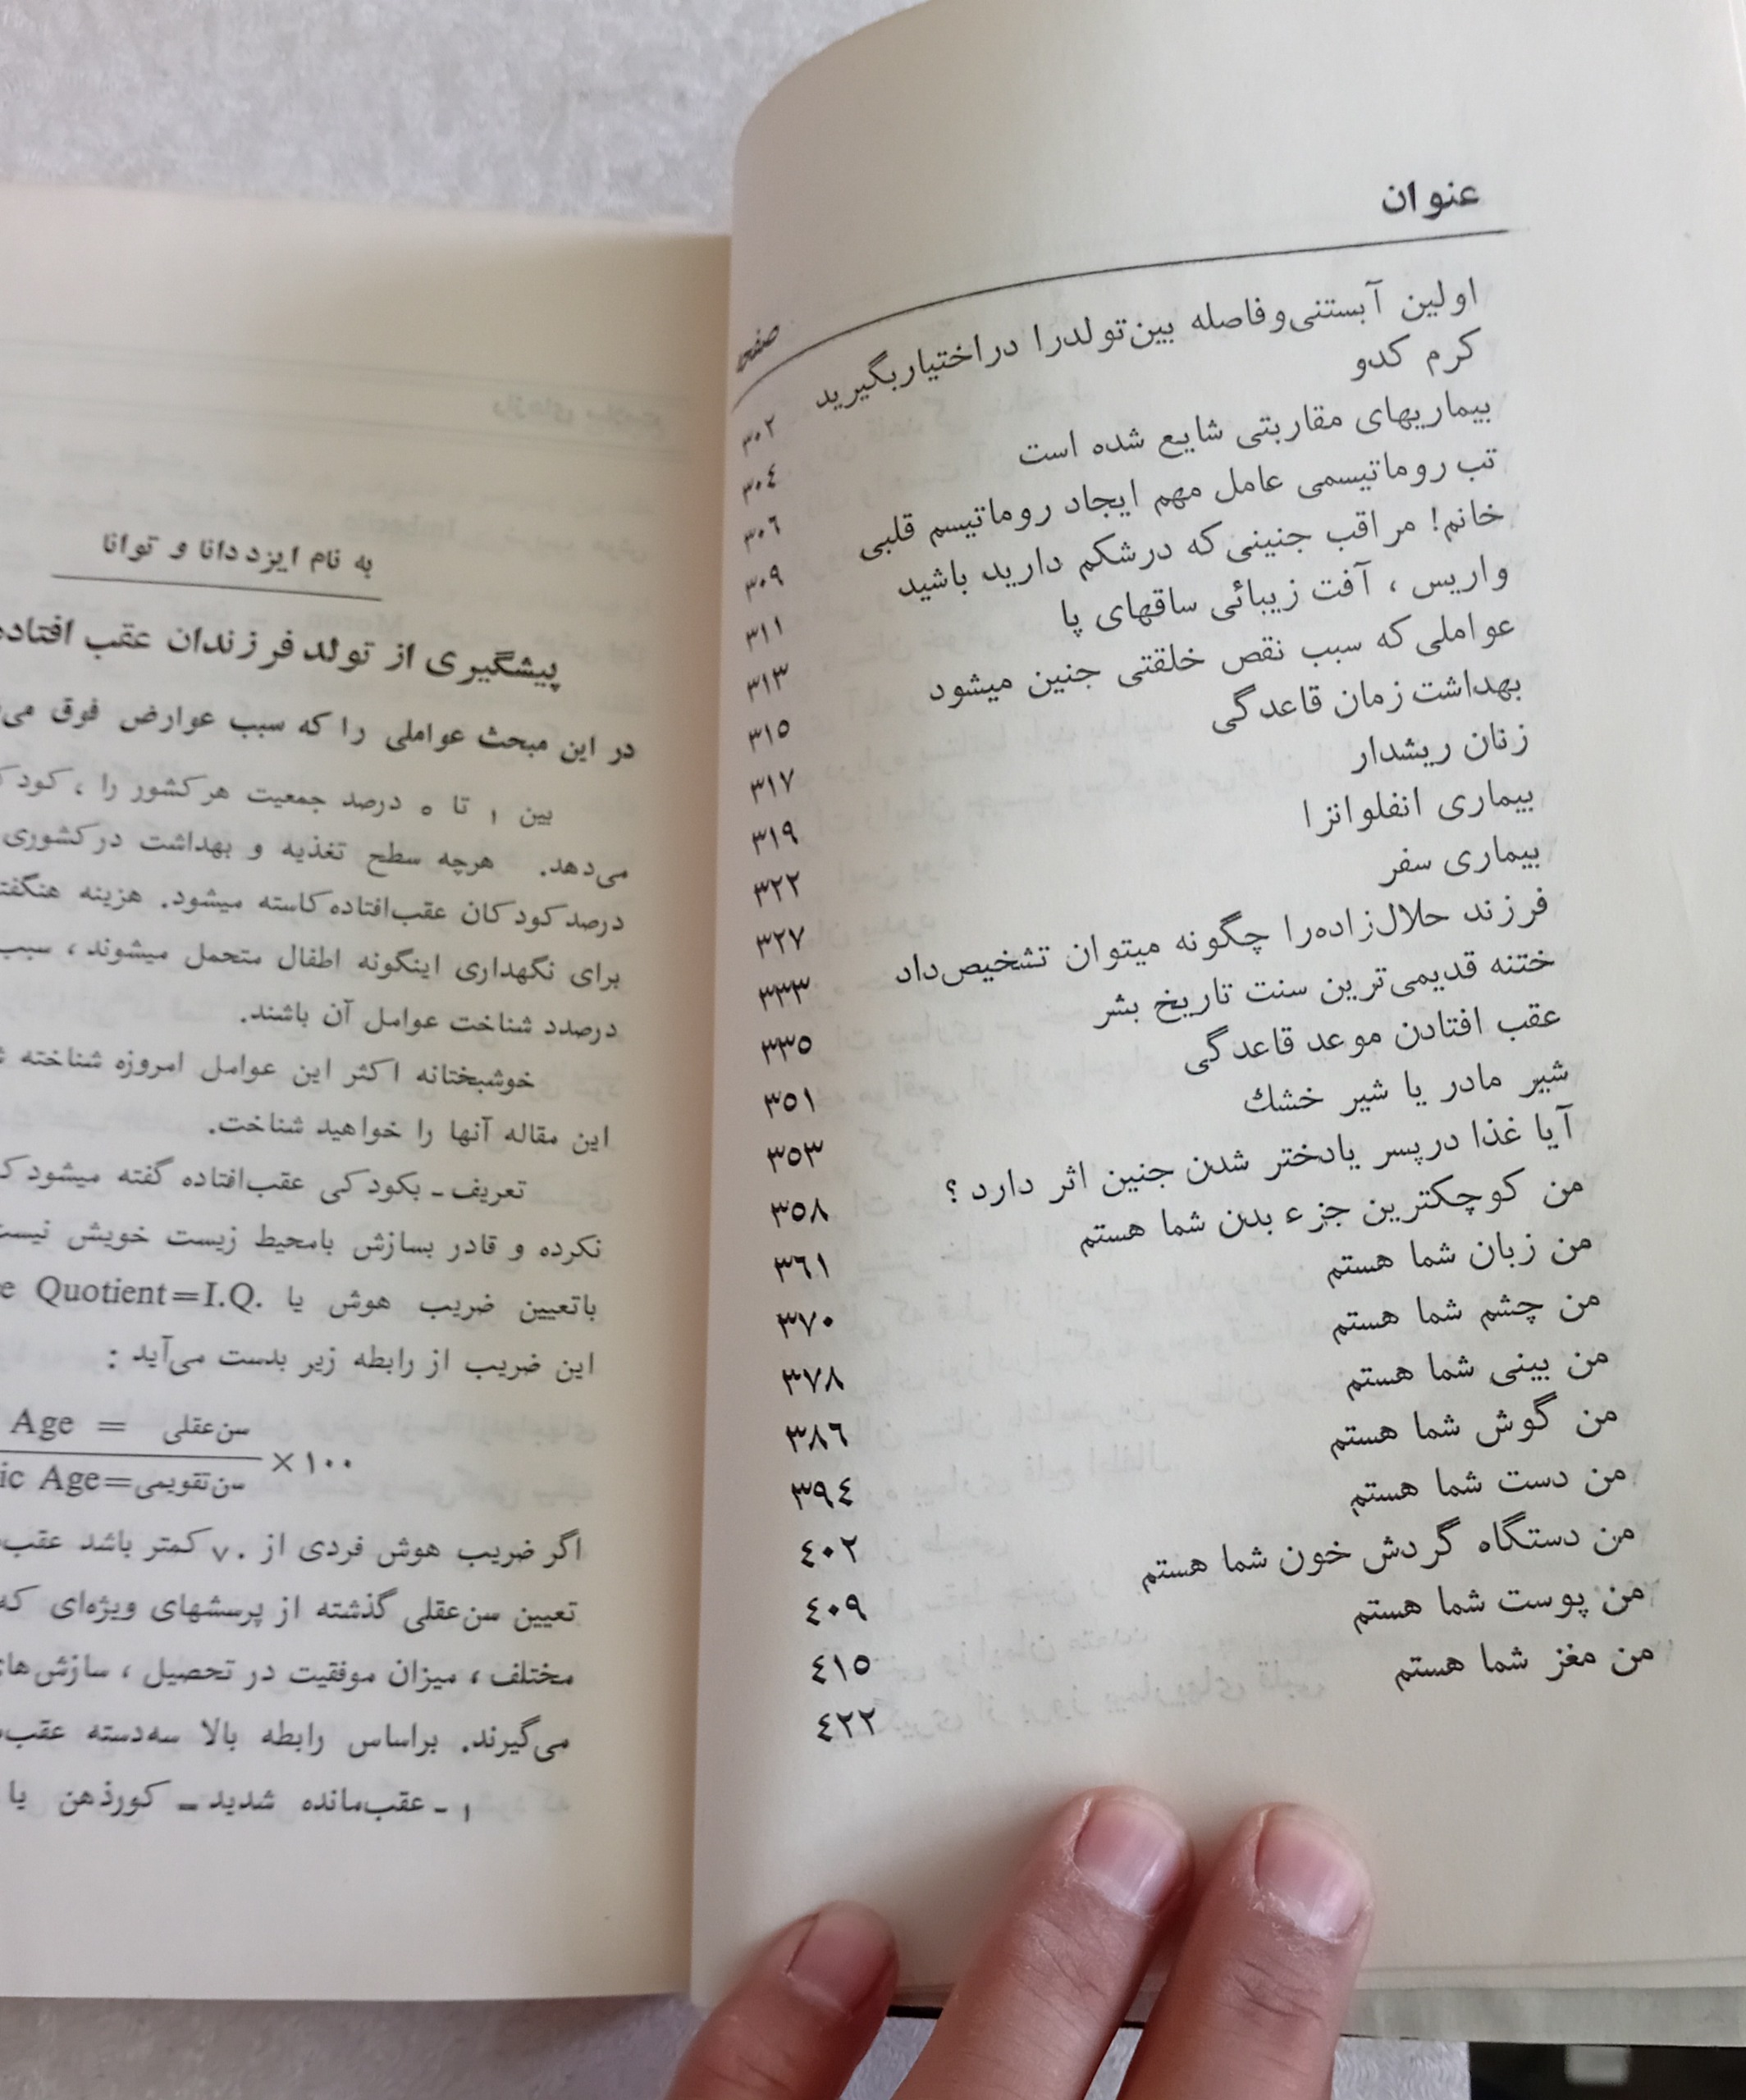 عنوان
صفحه
اولین آبستنی‌وفاصله بین‌تولدرا دراختیاربگیرید ۳۰۲
کرم کدو ۳۰٤
بیماریهای مقاربتی شایع شده است ۳۰٦
تب روماتیسمی عامل مهم ایجاد روماتیسم قلبی ۳۰۹
خانم! مراقب جنینی‌که درشکم دارید باشید ۳۱۱
واریس ، آفت زیبائی ساقهای پا ۳۱۳
عواملی‌که سبب نقص خلقتی جنین میشود ۳۱۵
بهداشت زمان قاعدگی ۳۱۷
زنان ریشدار ۳۱۹
بیماری انفلوانزا ۳۲۲
بیماری سفر ۳۲۷
فرزند حلال‌زاده‌را چگونه میتوان تشخیص‌داد ۳۳۳
ختنه قدیمی‌ترین سنت تاریخ بشر ۳۳۵
عقب افتادن موعد قاعدگی ۳۵۱
شیر مادر یا شیر خشك ۳۵۳
آیا غذا درپسر یادختر شدن جنین اثر دارد ؟ ۳۵۸
من کوچکترین جزء بدن شما هستم ۳٦۱
من زبان شما هستم ۳۷۰
من چشم شما هستم ۳۷۸
من بینی شما هستم ۳۸٦
من گوش شما هستم ۳۹٤
من دست شما هستم ٤۰۲
من دستگاه گردش خون شما هستم ٤۰۹
من پوست شما هستم ٤۱۵
من مغز شما هستم ٤۲۲
به نام ایزد دانا و توانا
پیشگیری از تولد فرزندان عقب افتاده
در این مبحث عواملی را که سبب عوارض فوق
بین ۱ تا ۵ درصد جمعیت هرکشور را ،
می‌دهد. هرچه سطح تغذیه و بهداشت درکشوری
درصدکودکان عقب‌افتاده‌کاسته میشود. هزینه
برای نگهداری اینگونه اطفال متحمل میشوند ، سبب
درصدد شناخت عوامل آن باشند.
خوشبختانه اکثر این عوامل امروزه شناخته
این مقاله آنها را خواهید شناخت.
تعریف ـ بکودکی عقب‌افتاده گفته میشود
نکرده و قادر بسازش بامحیط زیست خویش
باتعیین ضریب هوش یا Quotient=I.Q.
این ضریب از رابطه زیر بدست می‌آید :
Age = سن‌عقلی
×۱۰۰
Age=سن‌تقویمی
اگر ضریب هوش فردی از ۷۰ کمتر باشد
تعیین سن‌عقلی گذشته از پرسشهای ویژه‌ای
مختلف ، میزان موفقیت در تحصیل ،
می‌گیرند. براساس رابطه بالا سه‌دسته
۱ ـ عقب‌مانده شدید ـ کورذهن یا